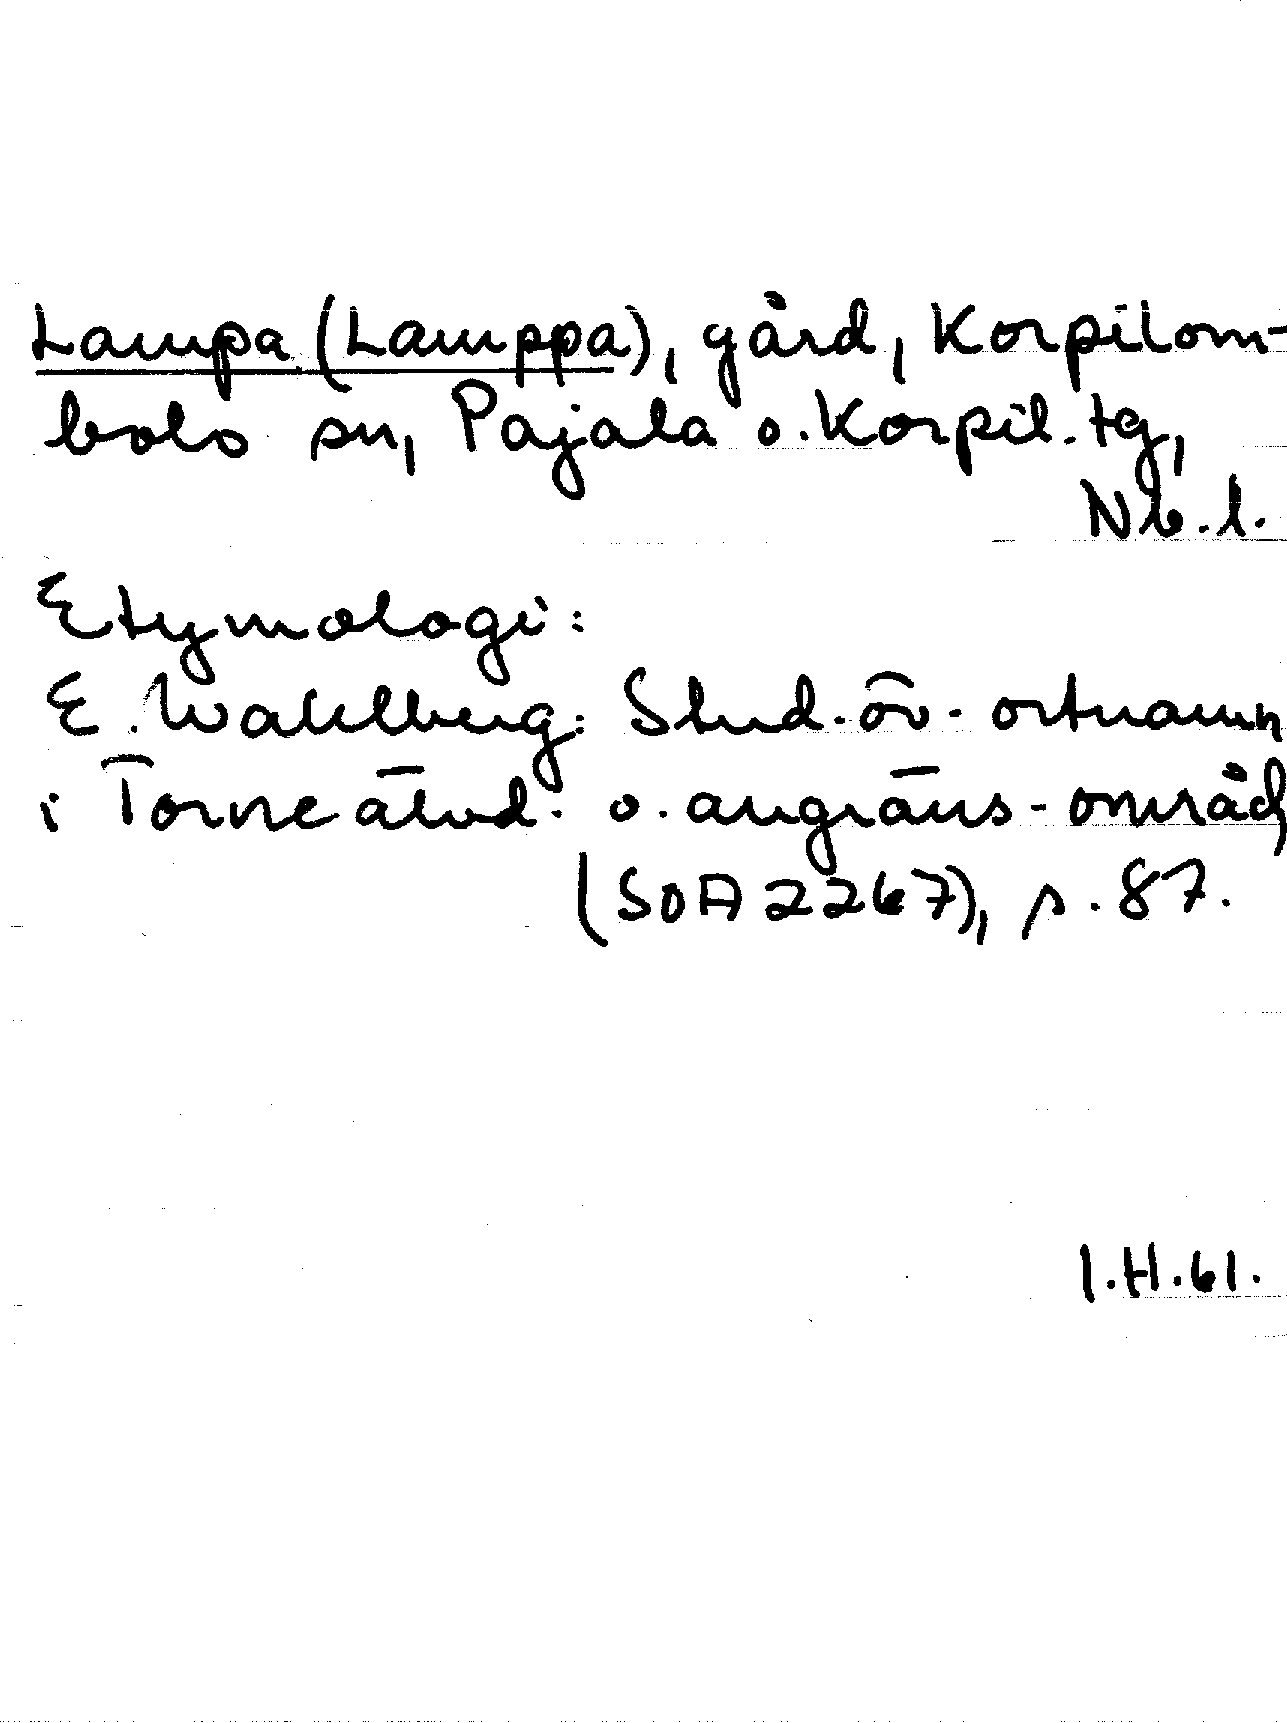 Lampa (Lamppa), gård, Korpilom-
bolo sn, Pajala o. Korpil. tg,
Nb. l.
Etymologi:
E. Wahlberg: Stud. öv. ortnamn
i Torneälvd. o. angräns. områd
(SOA 2267), s. 87.
I.H. 61.